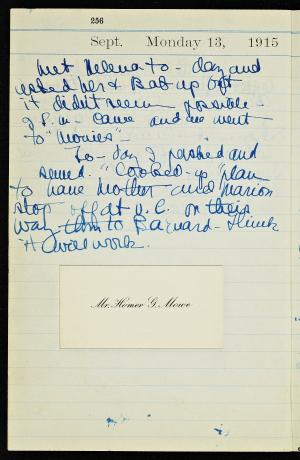 256
Sept. Monday 13, 1915
Met Helena to-day and
asked her & Bab up but
it didn't seem possible -
J.S.W. came and we went
to "Movies" -
To-day I washed and
sewed. "Cooked-up" plan
to have Mother and Marion
stop off at N.C. on their
way to Barnard - think
it will work.
Mr. Homer G. Mowe